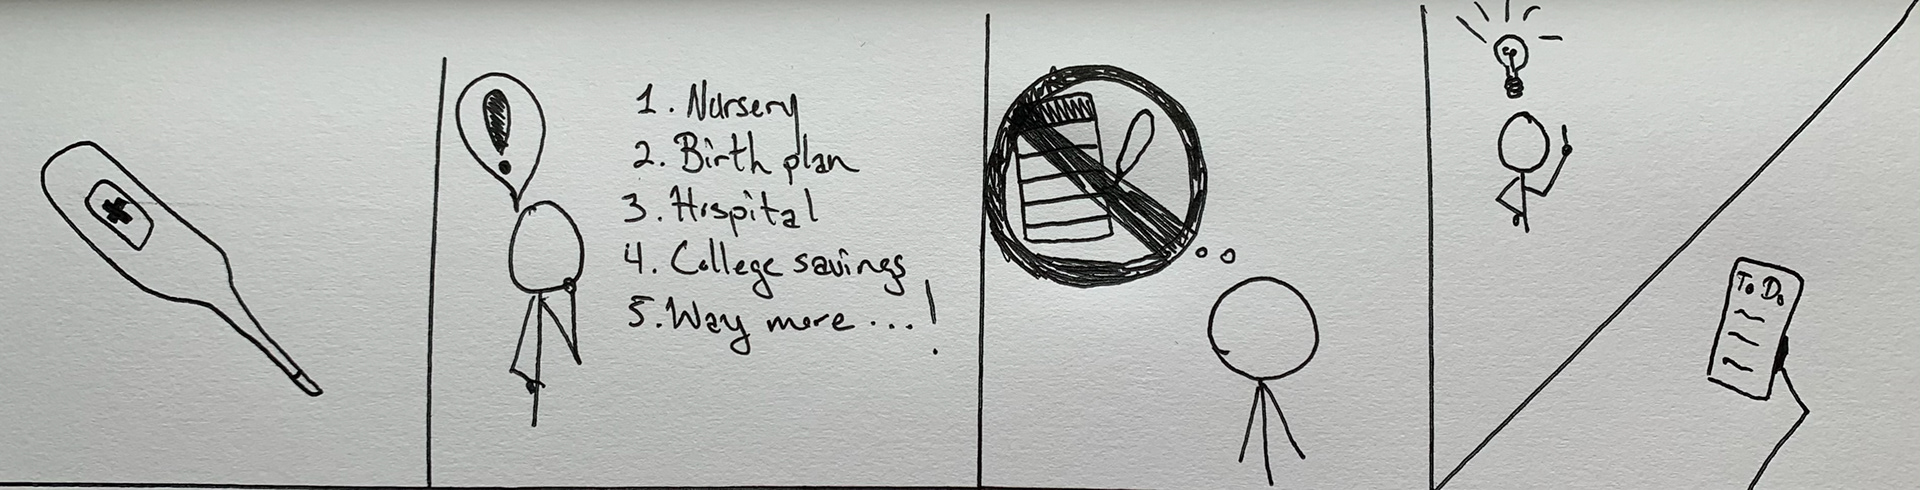 1. Nursery
2. Birth plan
3. Hospital
4. College savings
5. Way more ...!
To Do